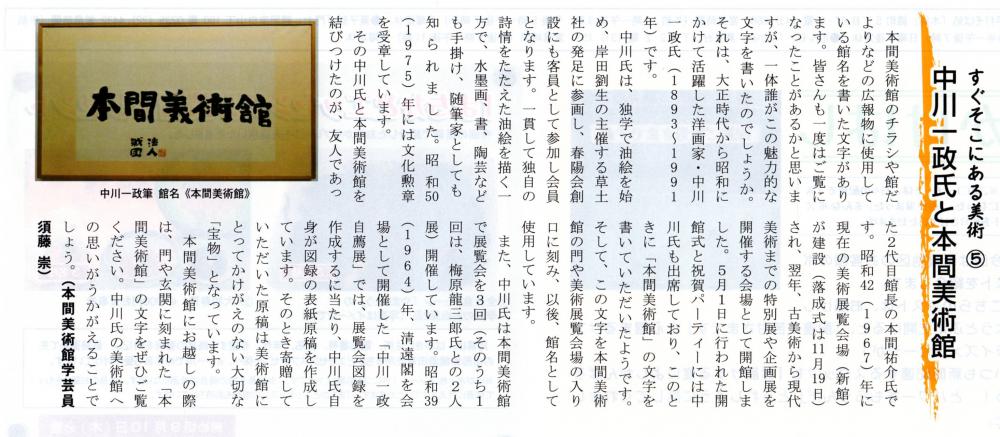 すぐそこにある美術 ⑤
中川一政氏と本間美術館
本間美術館のチラシや館だ
よりなどの広報物に使用して
いる館名を書いた文字があり
ます。皆さんも一度はご覧に
なったことがあるかと思いま
すが、一体誰がこの魅力的な
文字を書いたのでしょうか。
それは、大正時代から昭和に
かけて活躍した洋画家・中川
一政氏（1893〜1991
年）です。
中川氏は、独学で油絵を始
め、岸田劉生の主催する草土
社の発足に参画し、春陽会創
設にも客員として参加し会員
となります。一貫して独自の
詩情をたたえた油絵を描く一
方で、水墨画、書、陶芸など
も手掛け、随筆家としても
知られました。昭和50
（1975）年には文化勲章
を受章しています。
その中川氏と本間美術館を
結びつけたのが、友人であっ
た2代目館長の本間祐介氏で
す。昭和42（1967）年に
現在の美術展覧会場（新館）
が建設（落成式は11月19日）
され、翌年、古美術から現代
美術までの特別展や企画展を
開催する会場として開館しま
した。5月1日に行われた開
館式と祝賀パーティーには中
川氏も出席しており、このと
きに「本間美術館」の文字を
書いていただいたようです。
そして、この文字を本間美術
館の門や美術展覧会場の入り
口に刻み、以後、館名として
使用しています。
また、中川氏は本間美術館
で展覧会を3回（そのうち1
回は、梅原龍三郎氏との2人
展）開催しています。昭和39
（1964）年、清遠閣を会
場として開催した「中川一政
自薦展」では、展覧会図録を
作成するに当たり、中川氏自
身が図録の表紙原稿を作成し
ています。そのとき寄贈して
いただいた原稿は美術館に
とってかけがえのない大切な
「宝物」となっています。
本間美術館にお越しの際
は、門や玄関に刻まれた「本
間美術館」の文字をぜひご覧
ください。中川氏の美術館へ
の思いがうかがえることで
しょう。（本間美術館学芸員
須藤 崇）
本間美術館
法人
中川一政筆 館名《本間美術館》